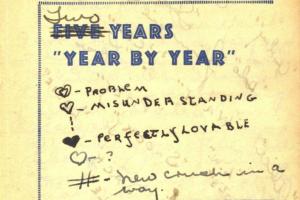 Two
FIVE YEARS
"YEAR BY YEAR"
♡ - PROBLEM
♡ - MISUNDERSTANDING
♥ - PERFECTLY LOVABLE
♡ - ?
# - New crush in a
way.